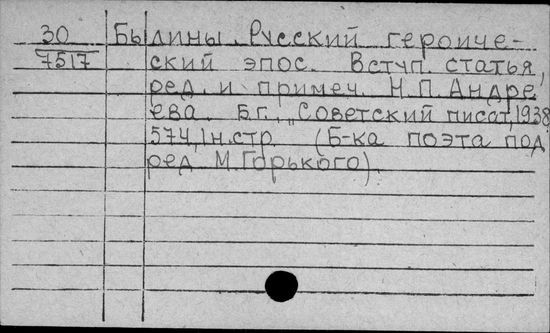 30 Былины. Русский героиче-
7517 ский эпос. Вступ. статья,
ред. и примеч. Н.П. Андре
ева. Б.г., "Советский писат, 1938
574, 1 н.стр. (Б-ка поэта под
ред М. Горького).